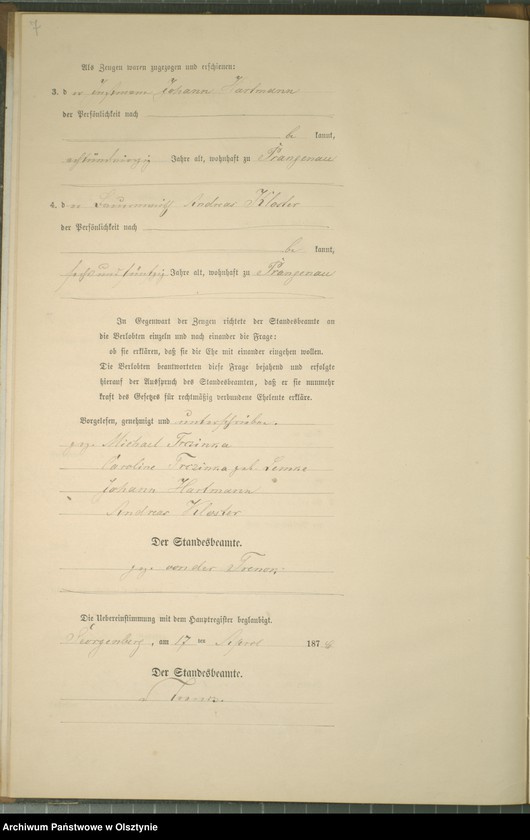 7
Als Zeugen waren zugezogen und erschienen:
3. d er Johann Hartmann
der Persönlichkeit nach
be kannt,
Jahre alt, wohnhaft zu Prangenau
4. d er Andreas Kloster
der Persönlichkeit nach
be kannt,
sechsundfünfzig Jahre alt, wohnhaft zu Prangenau
In Gegenwart der Zeugen richtete der Standesbeamte an
die Verlobten einzeln und nach einander die Frage:
ob sie erklären, daß sie die Ehe mit einander eingehen wollen.
Die Verlobten beantworteten diese Frage bejahend und erfolgte
hierauf der Ausspruch des Standesbeamten, daß er sie nunmehr
kraft des Gesetzes für rechtmäßig verbundene Eheleute erkläre.
Vorgelesen, genehmigt und unterschrieben.
gez. Michael
Caroline geb. Lemke
Johann Hartmann
Andreas Kloster
Der Standesbeamte.
gez. von der
Die Uebereinstimmung mit dem Hauptregister beglaubigt.
am 17 ten April 1876
Der Standesbeamte.
Archiwum Państwowe w Olsztynie